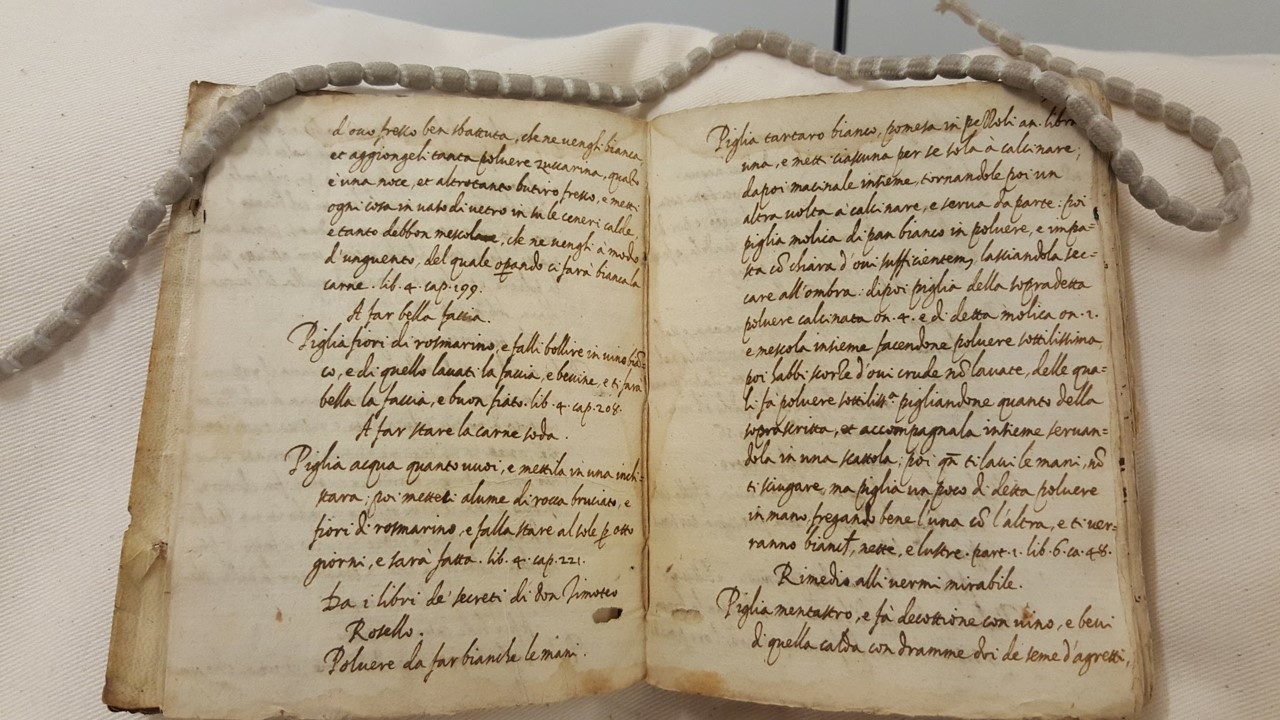 d'ouo fresco ben sbattuta, che ne venghi bianca,
et aggiongeli tanta poluere zuccarina, quãto
è una noce, et altrotanto butiro fresco, e metti
ogni cosa in uaso di uetro in su le ceneri calde
e tanto debbon mescolare, che ne venghi à modo
d'unguento, del quale opando ci farà bianca la
carne. lib. 4. cap. 199.
A far bella faccia.
Piglia fiori di rosmarino, e falli bollire in uino biã=
co, e di quello lauati la faccia, e beuine, e ti farà
bella la faccia, e buon fiato. lib. 4. cap. 208.
A far stare la carne soda.
Piglia acqua quanto uuoi, e mettila in una inchi=
stara; poi metteti alume di rocca bruciato, e
fiori di rosmarino, e falla stare al sole p otto
giorni, e sarà fatta. lib. 4. cap. 221.
Da i libri de' secreti di don Timoteo
Rosello.
Poluere da far bianche le mani.
Piglia tartaro bianco, pomesa in pezzoli an. libra
una, e metti ciascuna per se sola a calcinare;
dapoi macinale insieme, tornandole poi un
altra uolta à calcinare, e serua da parte: poi
piglia molica di pan bianco in poluere, e impa=
sta cõ chiara d'oui sufficientem, lassiandola sec=
care all'ombra: dipoi piglia della sopradetta
poluere calcinata on. 4. e di detta molica on. 2.
e mescola insieme facendone poluere sottilissima
poi habbi scorze d'oui crude nõ lauate, delle qua=
li fà poluere sottiliss.a pigliandone quanto della
soprascritta, et accompagnala insieme seruan=
dola in una scattola; poi qñ ti laui le mani, nõ
ti sciugare, ma piglia un poco di detta poluere
in mano, fregando bene l'una cõ l'altra, e ti ver=
ranno bianche, nette, e lustre. part. 1. lib. 6. ca. 48.
Rimedio alli vermi mirabile.
Piglia mentastro, e fà decottione con uino, e beui
di quella calda con dramme doi de seme d'agretti,